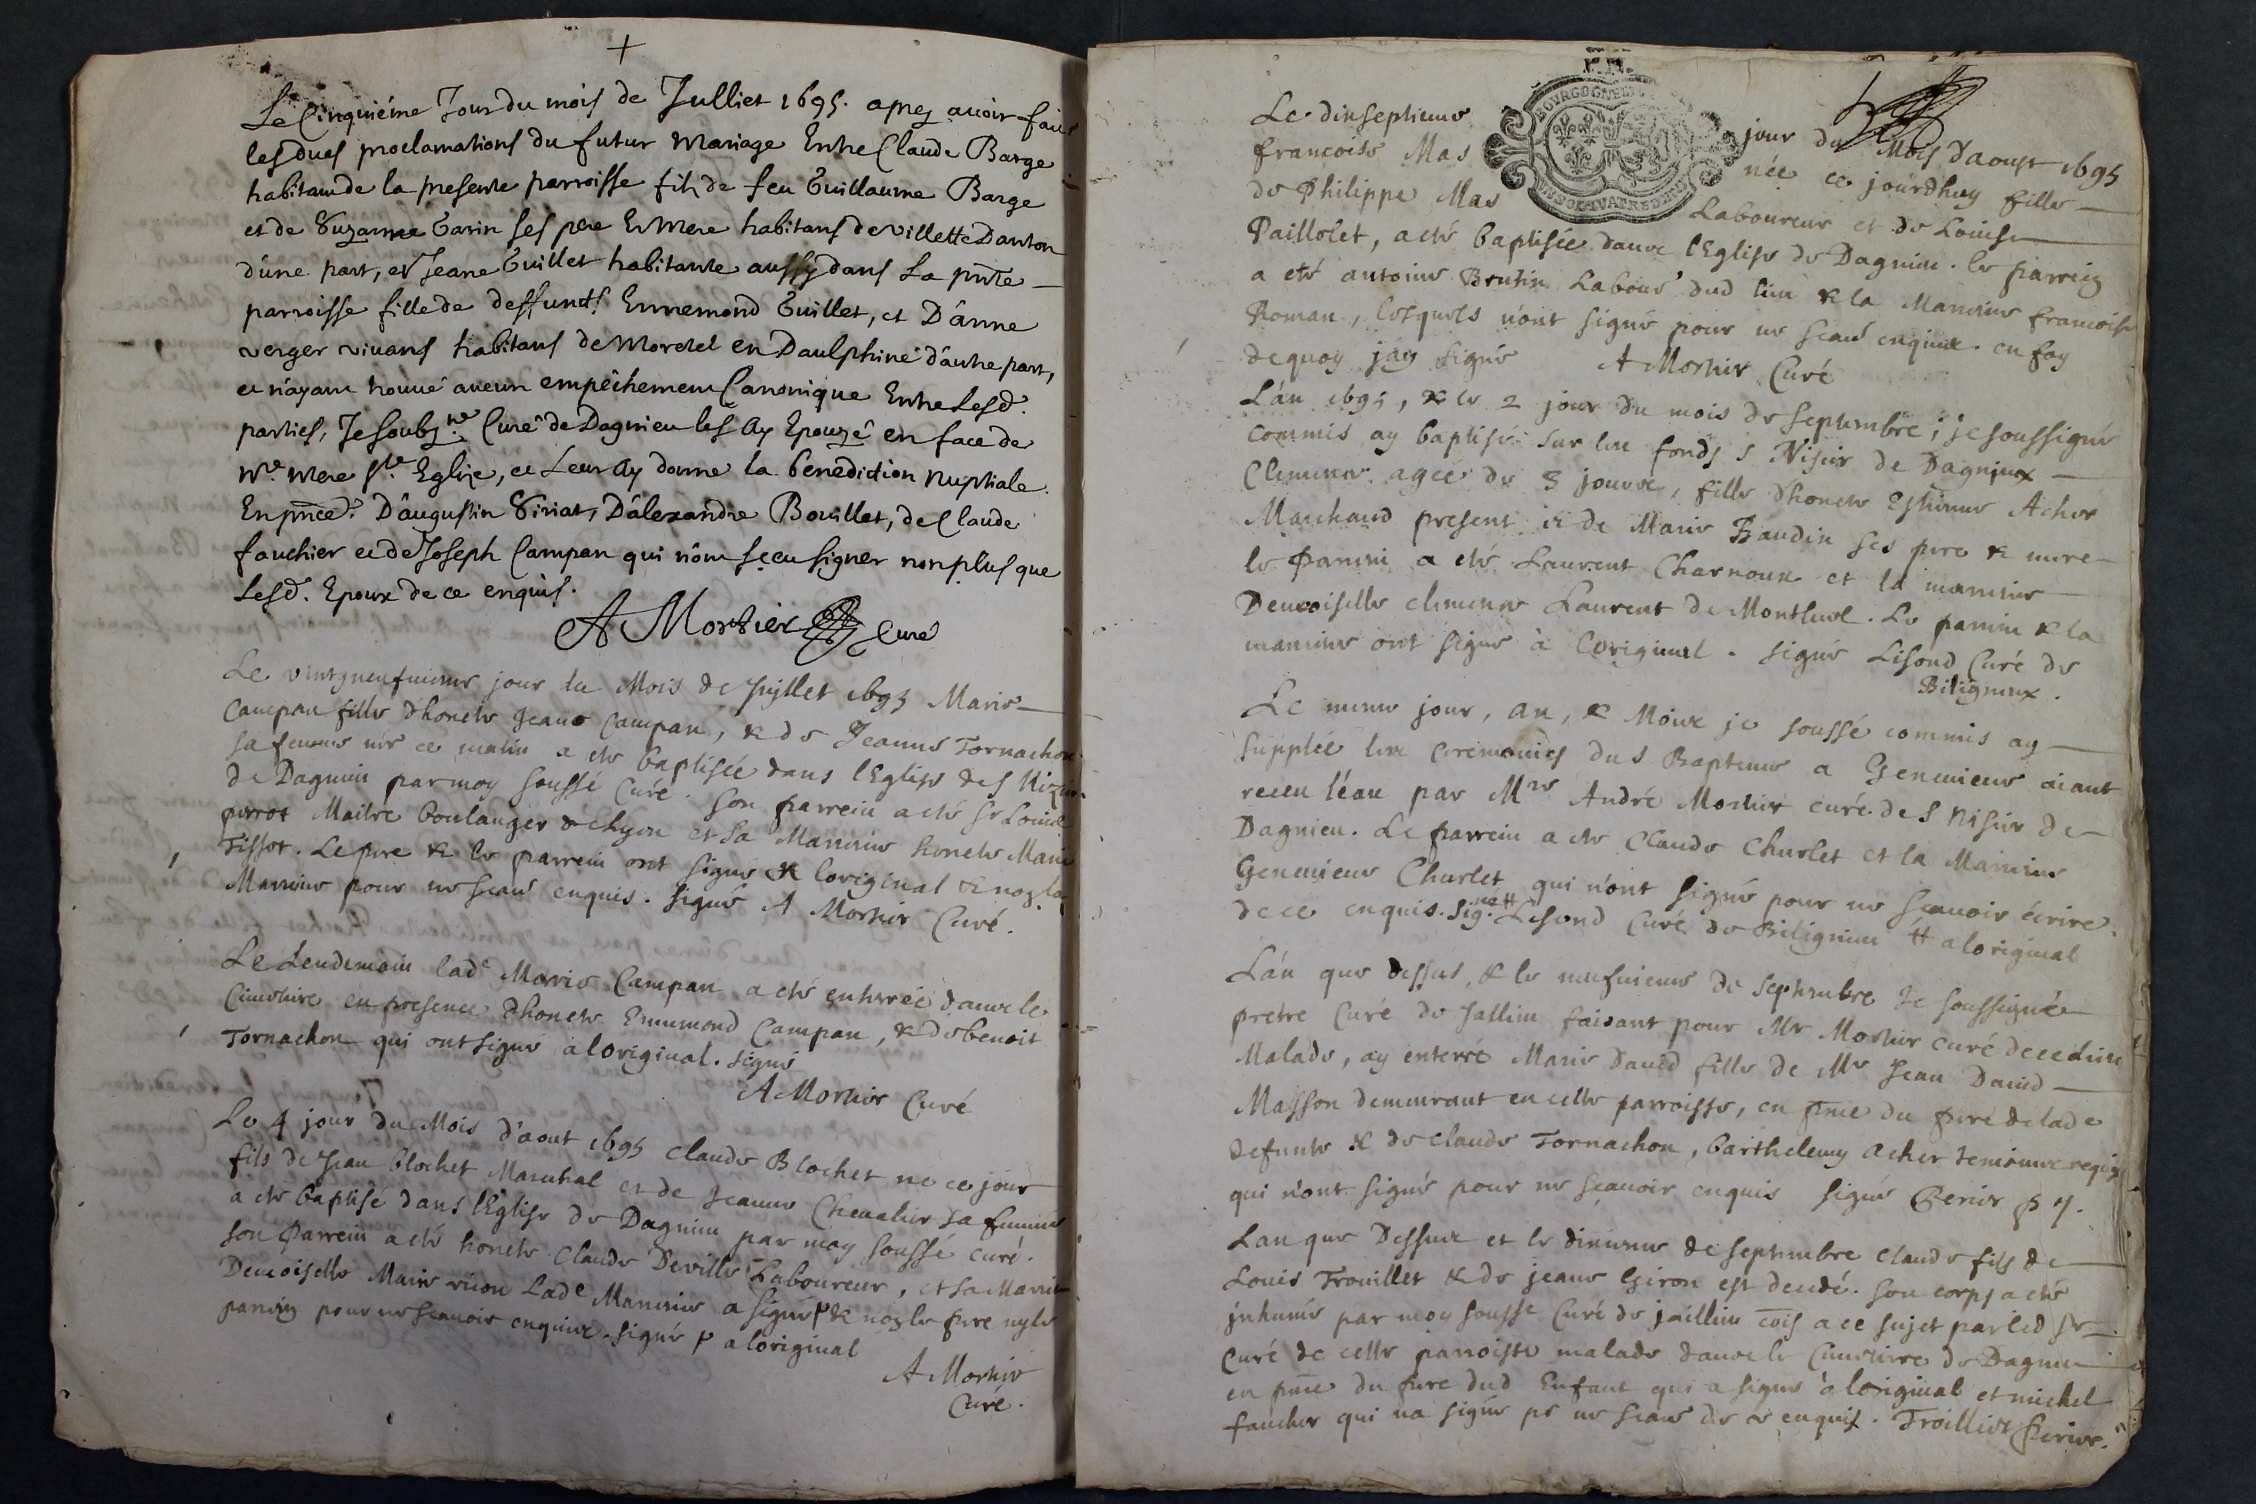 Le Cinquiéme Jour du mois de Julliet 1695. apres auoir faict
les dues proclamations du futur Mariage Entre Claude Barge
habitant de la presente parroisse fils de feu Guillaume Barge
et de Suzanne Garin ses pere Et Mere habitans de villette Danton
d'une part, et Jeane Guillet habitante aussy dans La pnte
parroisse fille de deffunts Ennemond Guillet, et D'anne
verger viuans habitans de Morestel en Daulphiné d'autre part,
et n'ayant trouué aucun empêchement Canonique Entre Lesd.
parties, Je soubz.né Curé de Dagnieu les Ay Epouzé en face de
Nre. Mere Ste. Eglize, et Leur Ay donné la benediction nuptiale.
En pnce. D'augustin Siriat, D'alexandre Bouillet, de Claude
fauchier et de Joseph Campan qui n'ont sçeu signer non plus que
Lesd. Epoux de ce enquis.
A Mortier Curé
Le vintgneufuieme jour du Mois de Juillet 1695 Marie
Campan fille d'honete Jeane Campan, & de Jeanne Tornachon
sa femme née ce matin a ete baptisée dans l'Eglise de S Nizier
de Dagnieu par moy soussé Curé. Son parrein a eté Sr Louis
perrot Maitre boulanger de Lyon et sa Marreine honete Marie
Tissot. Le pere & le parrein ont signé & l'original & non la
Marreine pour ne scauoir enquis. Signé A Mortier Curé.
Le Lendemain lade Marie Campan a eté enterrée dans le
Cimetiere en presence d'honete Ennemond Campan, & de benoit
Tornachon qui ont signé a l'original. Signé
A Mortier Curé
Le 4 jour du Mois d'aout 1695 Claude Blochet né ce jour
fils de Jean blochet Marechal et de Jeanne Cheualier sa femme
a eté baptisé dans l'Eglise de Dagnieu par moy soussé curé.
Son parrein a eté honete Claude Deville Laboureur, et sa Marreine
Demoiselle Marie Lade Marreine a signé & non le pere ny le
parrein pour ne scauoir enquis. Signé a l'original
A Mortier
Curé.
Le dixseptieme jour du Mois d'aoust 1695
francoise Mas née ce jourdhuy fille
de Philippe Mas Laboureur et de Louise
Paillolet, a eté baptisée dans l'Eglise de Dagnieu. le parrein
a eté antoine Brutin Labour. dud lieu & la Marreine francoise
Roman, lesquels n'ont signé pour ne scauoir enquis. en foy
dequoy j'ay signé A Mortier Curé
L'an 1695, & le 2 jour du mois de Septembre, je soussigné
commis ay baptisé sur les fonds S Nisier de Dagnieux
Climene agée de 8 jours, fille d'honete Estienne Acher
Marchand present et de Marie Baudin ses pere & mere
le Parrein a eté Laurent Charnoux et la marreine
Demoiselle climene Laurent de Montluel. Le parrein & la
marreine ont signé à l'original. signé Lisond Curé de
Bilignieux.
Le meme jour, an, & Mois je soussé commis ay
supplée les ceremonies du S Bapteme a Geneuieue aiant
receu l'eau par Mre André Mortier curé de S Nisier de
Dagnieu. Le parrein a eté Claude Churlet et la Marreine
Geneuieue Churlet qui n'ont signé pour ne scauoir écrire
de ce enquis. Signé # Lisond Curé de Bilignieu # a l'original
L'an que dessus, & le neufuieme de Septembre Je soussigné
pretre Curé de Jallieu faisant pour Mr Mortier curé de ce lieu
Malade, ay enterré Marie Dauid fille de Mr Jean Dauid
Masson demeurant en cette parroisse, en pnce du pere de lade
defunte & de Claude Tornachon, barthelemy acher temoins requis
qui n'ont signé pour ne scauoir enquis signé Perier
Lan que Dessus et le dixieme de Septembre Claude fils de
Louis Trouillet & de jeane Giron est decedé. son corps a eté
inhumé par moy sousse Curé de jaillieu cõis a ce sujet par led Sr
Curé de cette parroisse malade dans le Cimetiere de Dagnieu
en pnce du pere dud Enfant qui a signé à l'original et michel
faucher qui na signé pr ne scauoir de ce enquis. Troilliet Perier.